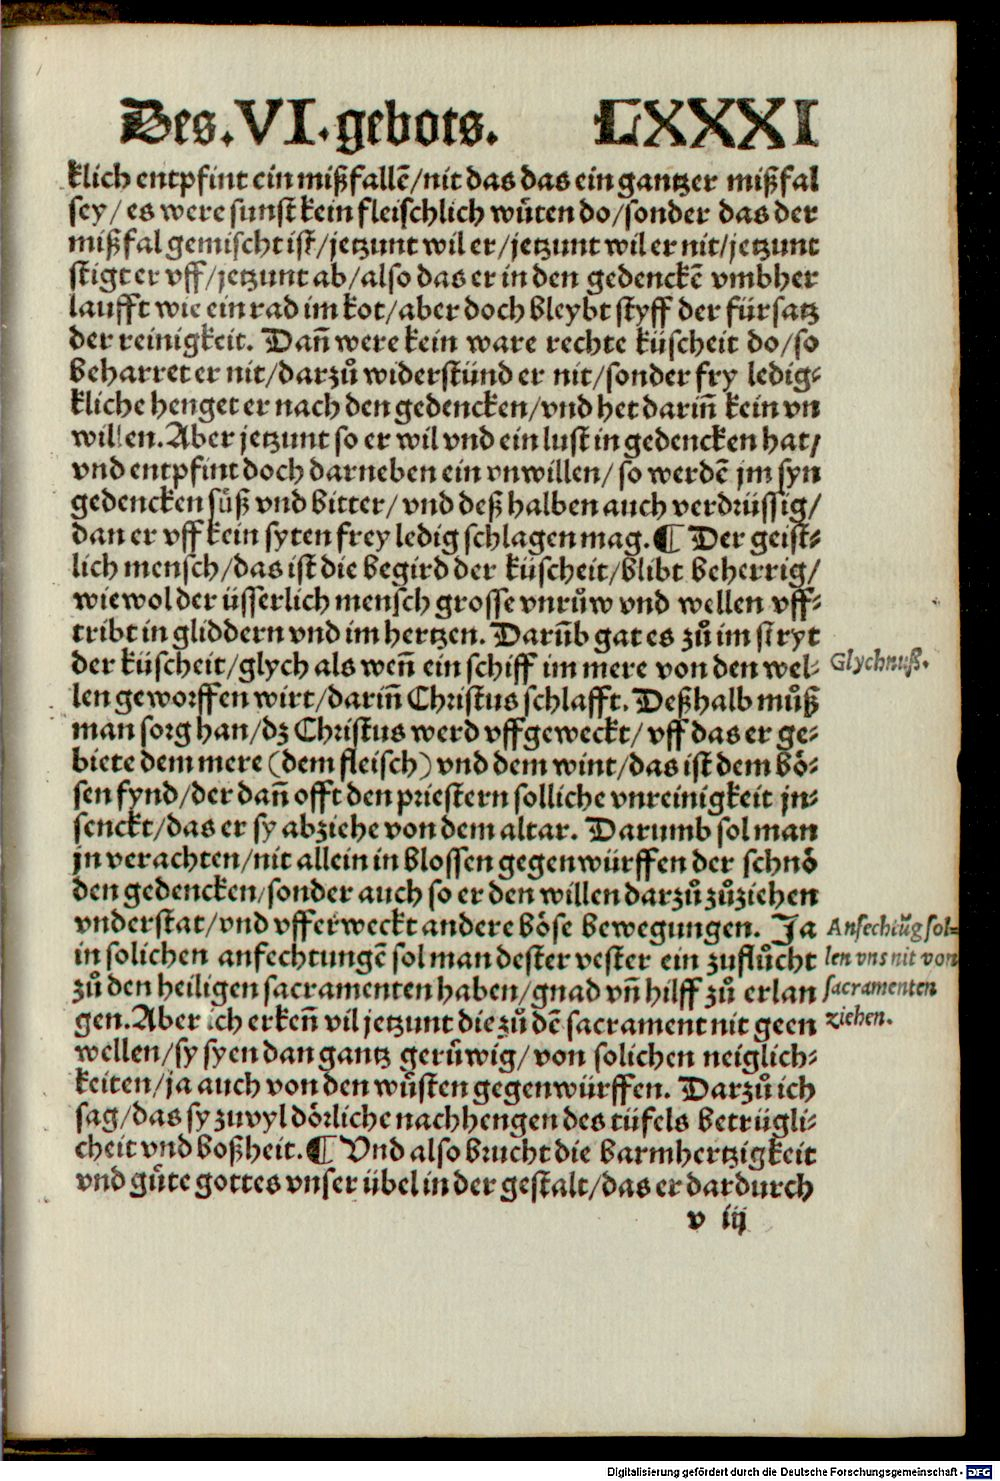 Des.VI.gebots. LXXXI
klich entpfint ein mißfallē/nit das das ein gantzer mißfal
sey/ es were sunst kein fleischlich wuͤten do/sonder das der
mißfal gemischt ist/jetzunt wil er/jetzunt wil er nit/jetzunt
stigt er vff/jetzunt ab/also das er in den gedenckē vmbher
laufft wie ein rad im kot/aber doch bleybt styff der fürsatz
der reinigkeit. Dañ were kein ware rechte küscheit do/so
beharret er nit/darzů widerstünd er nit/sonder fry ledig⸗
kliche henget er nach den gedencken/vnd het dariñ kein vn
willen. Aber jetzunt so er wil vnd ein lust in gedencken hat/
vnd entpfint doch darneben ein vnwillen/ so werdē jm syn
gedencken suͤß vnd bitter/ vnd deß halben auch verdrüssig/
dan er vff kein syten frey ledig schlagen mag.¶ Der geist⸗
lich mensch/das ist die begird der küscheit/blibt beherrig/
wiewol der üsserlich mensch grosse vnrůw vnd wellen vff⸗
tribt in gliddern vnd im hertzen. Darũb gat es zů im stryt
der küscheit/glych als weñ ein schiff im mere von den wel⸗
len geworffen wirt/dariñ Christus schlafft. Deßhalb můß
man sorg han/dz Christus werd vffgeweckt/ vff das er ge⸗
biete dem mere (dem fleisch) vnd dem wint/das ist dem boͤ⸗
sen fynd/der dañ offt den priestern solliche vnreinigkeit jn⸗
senckt/das er sy abziehe von dem altar. Darumb sol man
jn verachten/nit allein in blossen gegenwürffen der schnoͤ
den gedencken/sonder auch so er den willen darzů zůziehen
vnderstat/vnd vfferweckt andere boͤse bewegungen. Ja
in solichen anfechtungē sol man dester vester ein zuflůcht
zů den heiligen sacramenten haben/gnad vñ hilff zů erlan
gen. Aber ich erkeñ vil jetzunt die zů dē sacrament nit geen
wellen/sy syen dan gantz gerůwig/von solichen neiglich⸗
keiten/ja auch von den wuͤsten gegenwürffen. Darzů ich
sag/das sy zuvyl doͤrliche nachhengen des tüfels betrügli⸗
cheit vnd boßheit.¶ Vnd also brucht die barmhertzigkeit
vnd guͤte gottes vnser übel in der gestalt/das er dardurch
v iij
Glychnuß.
Anfechtũg sol⸗
len vns nit von
sacramenten
ziehen.
Digitalisierung gefördert durch die Deutsche Forschungsgemeinschaft - DFG